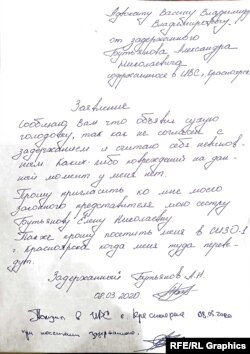 Адвокату Васину Владимиру
Владимировичу
от задержанного
Бутьянова Александра
Николаевича
содержащегося в ИВС г. Красноярск
Заявление
Сообщаю Вам что объявил сухую
голодовку, так как не согласен с
задержанием и считаю себя невинов-
ным каких-либо повреждений на дан-
ный момент у меня нет.
Прошу пригласить ко мне моего
законного представителя мою сестру
Бутьянову Елену Николаевну.
Также прошу посетить меня в СИЗО-1
г. Красноярска когда меня туда переве-
дут.
Задержанный Бутьянов А.Н
08.03.2020
в ИВС г. Красноярска 08.03.2020
при посещении задержанного.
RFE/RL Graphics